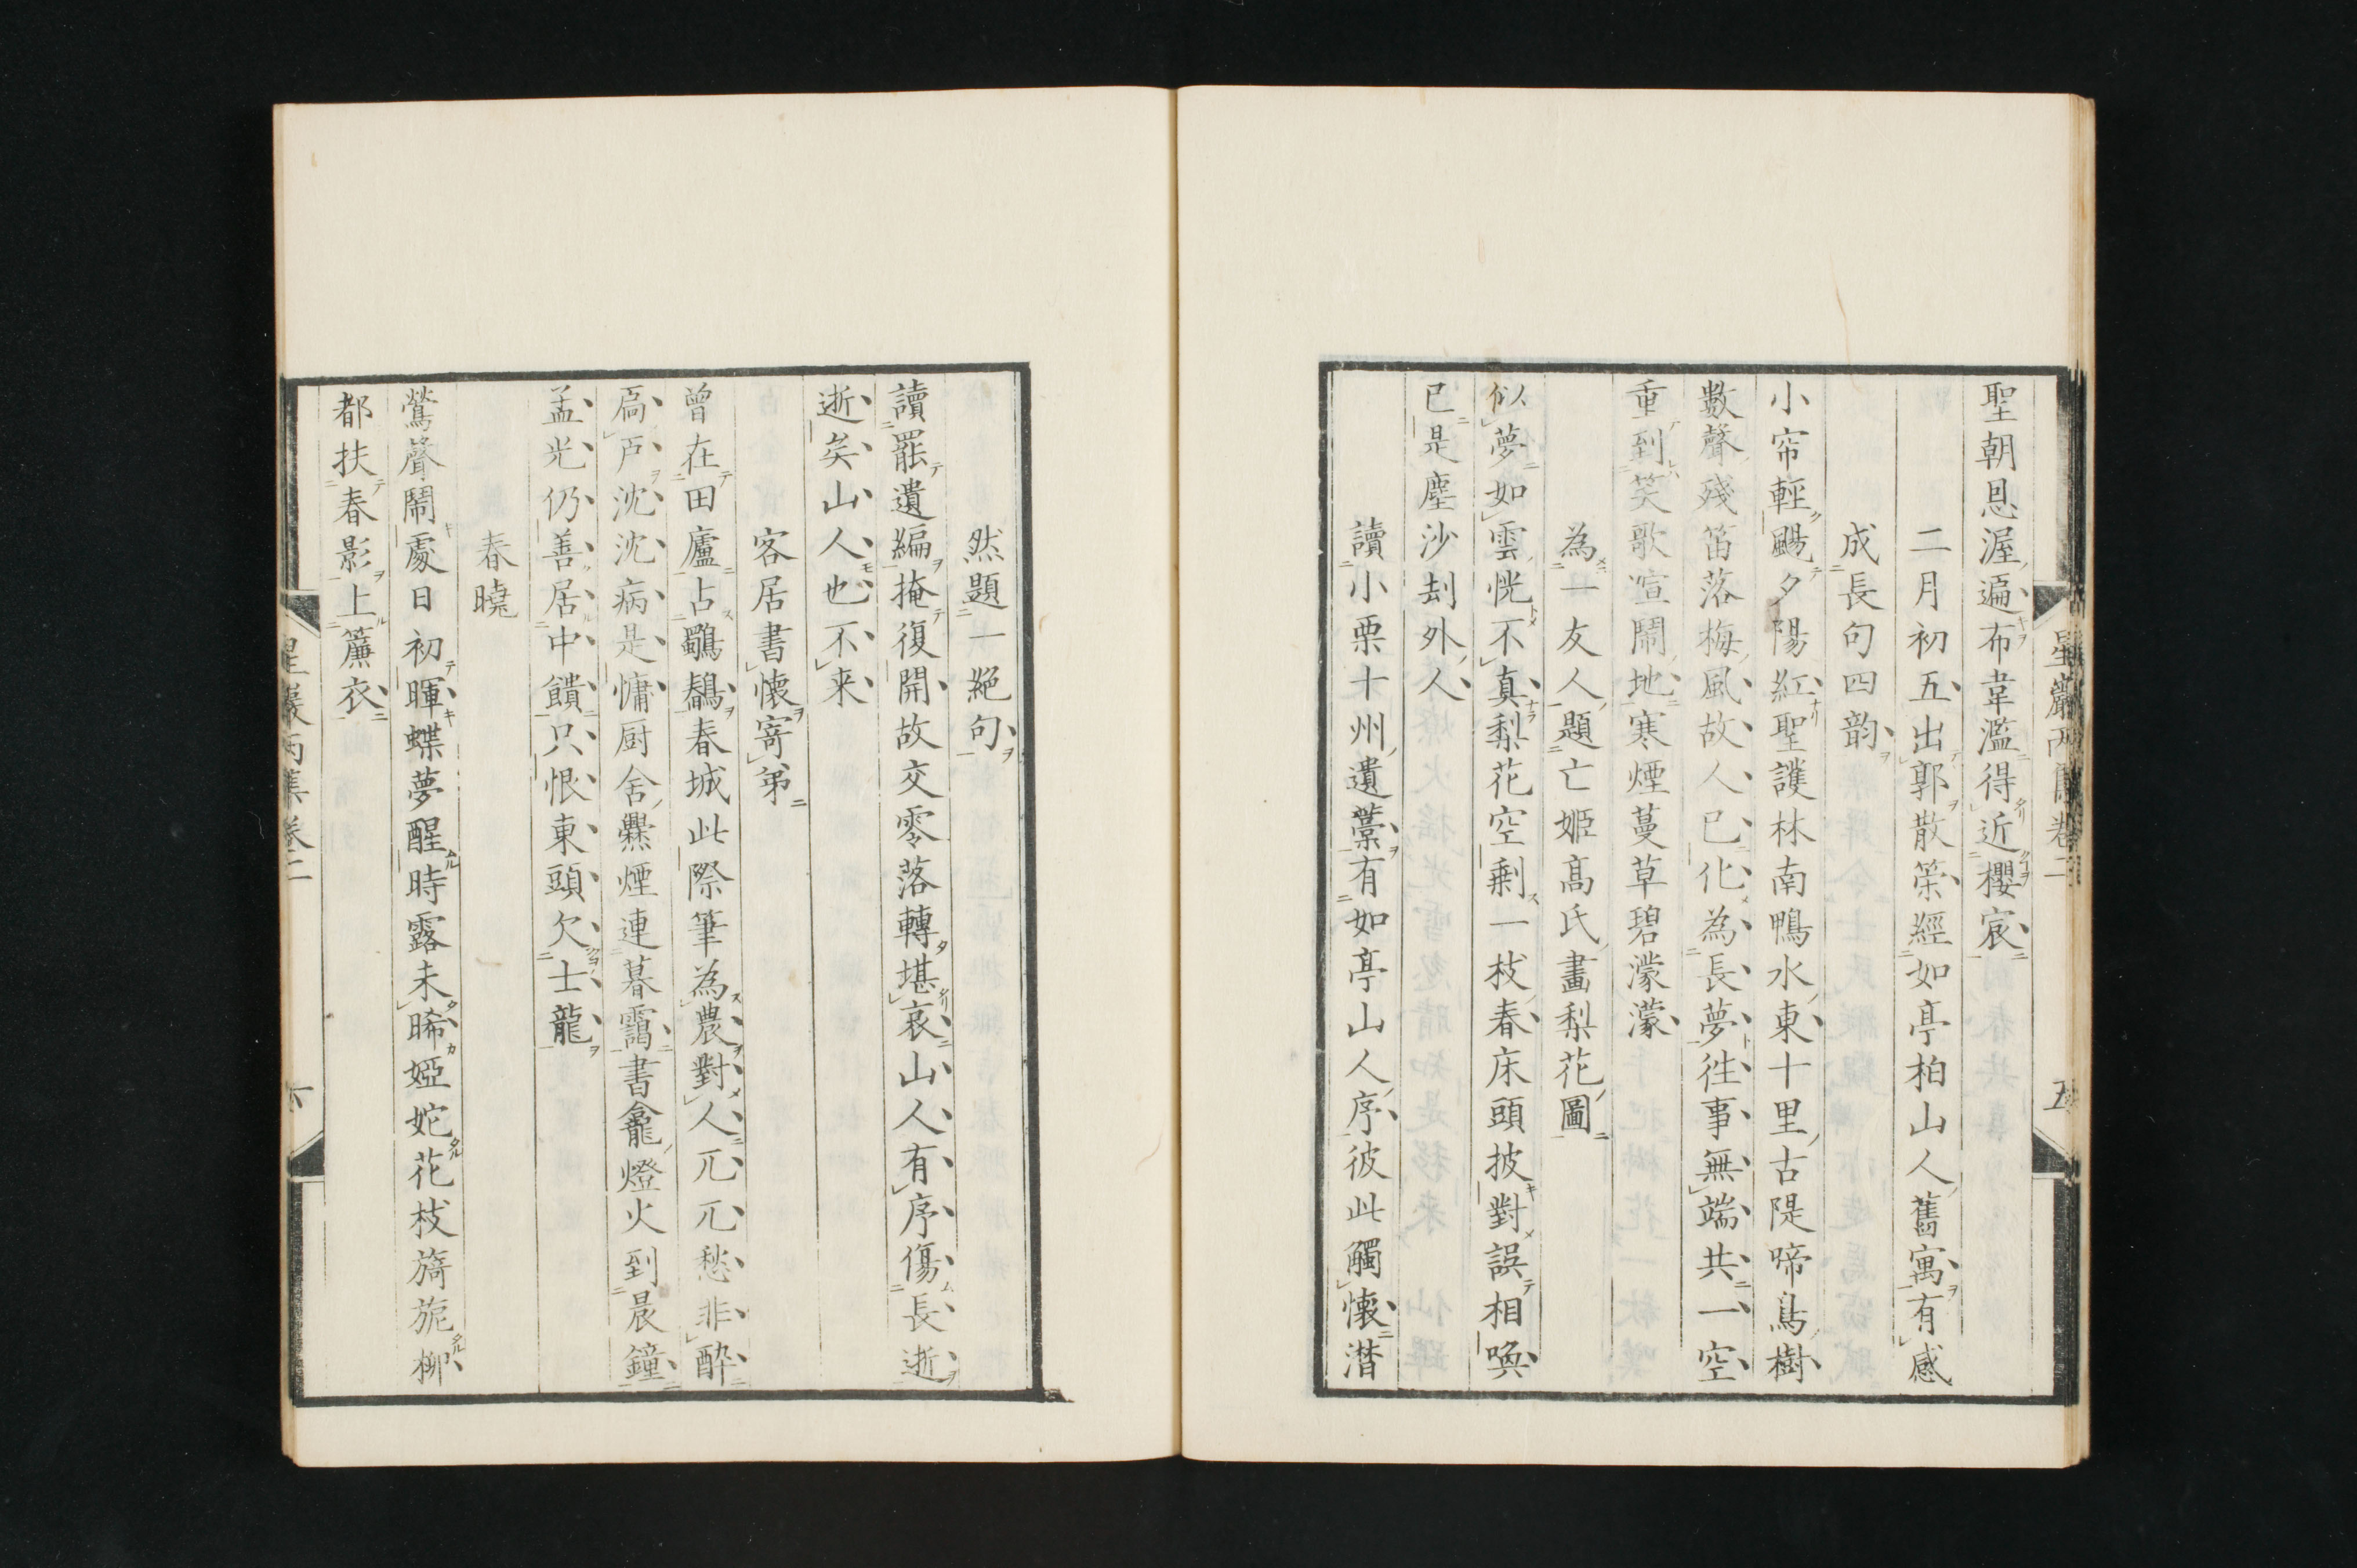 聖朝恩渥遍布韋濫得近櫻宸
二月初五出郭散策經如亭柏山人舊寓有感
成長句四韵
小帘輕颺夕陽紅聖護林南鴨水東十里古隄啼鳥樹
數聲殘笛落梅風故人已化為長夢往事無端共一空
重到笑歌喧鬧地寒煙蔓草碧濛濛
為一友人題亡姬高氏畫梨花圖
似夢如雲恍不真梨花空剩一枝春床頭披對誤相喚
已是塵沙刦外人
讀小栗十州遺藁有如亭山人序彼此觸懷潛
然題一絕句
讀罷遺編掩復開故交零落轉堪哀山人有序傷長逝
逝矣山人也不来
客居書懷寄弟
曾在田廬占鸐鷭春城此際筆為農對人兀兀愁非醉
扄戸沈沈病是慵厨舍爨煙連暮靄書龕燈火到晨鐘
孟光仍善居中饋只恨東頭欠士龍
春曉
鶯聲鬧處日初暉蝶夢醒時露未晞婭姹花枝旖旎柳
都扶春影上簾衣
星巖丙集卷二
五
星巖丙集卷二
六